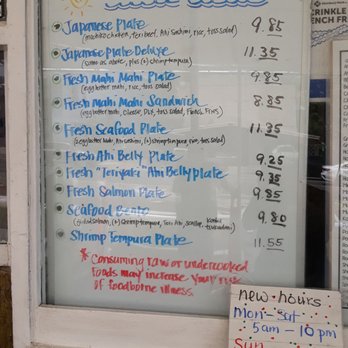 Japanese Plate 9.85
Japanese Plate Deluxe 11.35
(same as above, plus (2) shrimp tempura)
Fresh Mahi Mahi Plate 9.85
(egg batter mahi, rice, toss salad)
Fresh Mahi Mahi Sandwich 8.85
(egg batter mahi, cheese, toss salad, Fries)
Fresh Seafood Plate 11.35
(egg batter mahi, Ahi sashimi, shrimp tempura, rice, toss salad)
Fresh Ahi Belly Plate 9.25
Fresh "Teriyaki" Ahi Belly Plate 9.35
Fresh Salmon Plate 9.85
Seafood Bento 9.80
Shrimp Tempura Plate 11.55
* Consuming raw or undercooked
foods may increase your risk
of foodborne illness.
new hours
Mon-Sat
5am - 10pm
Sun
CRINKLE
FRENCH FR